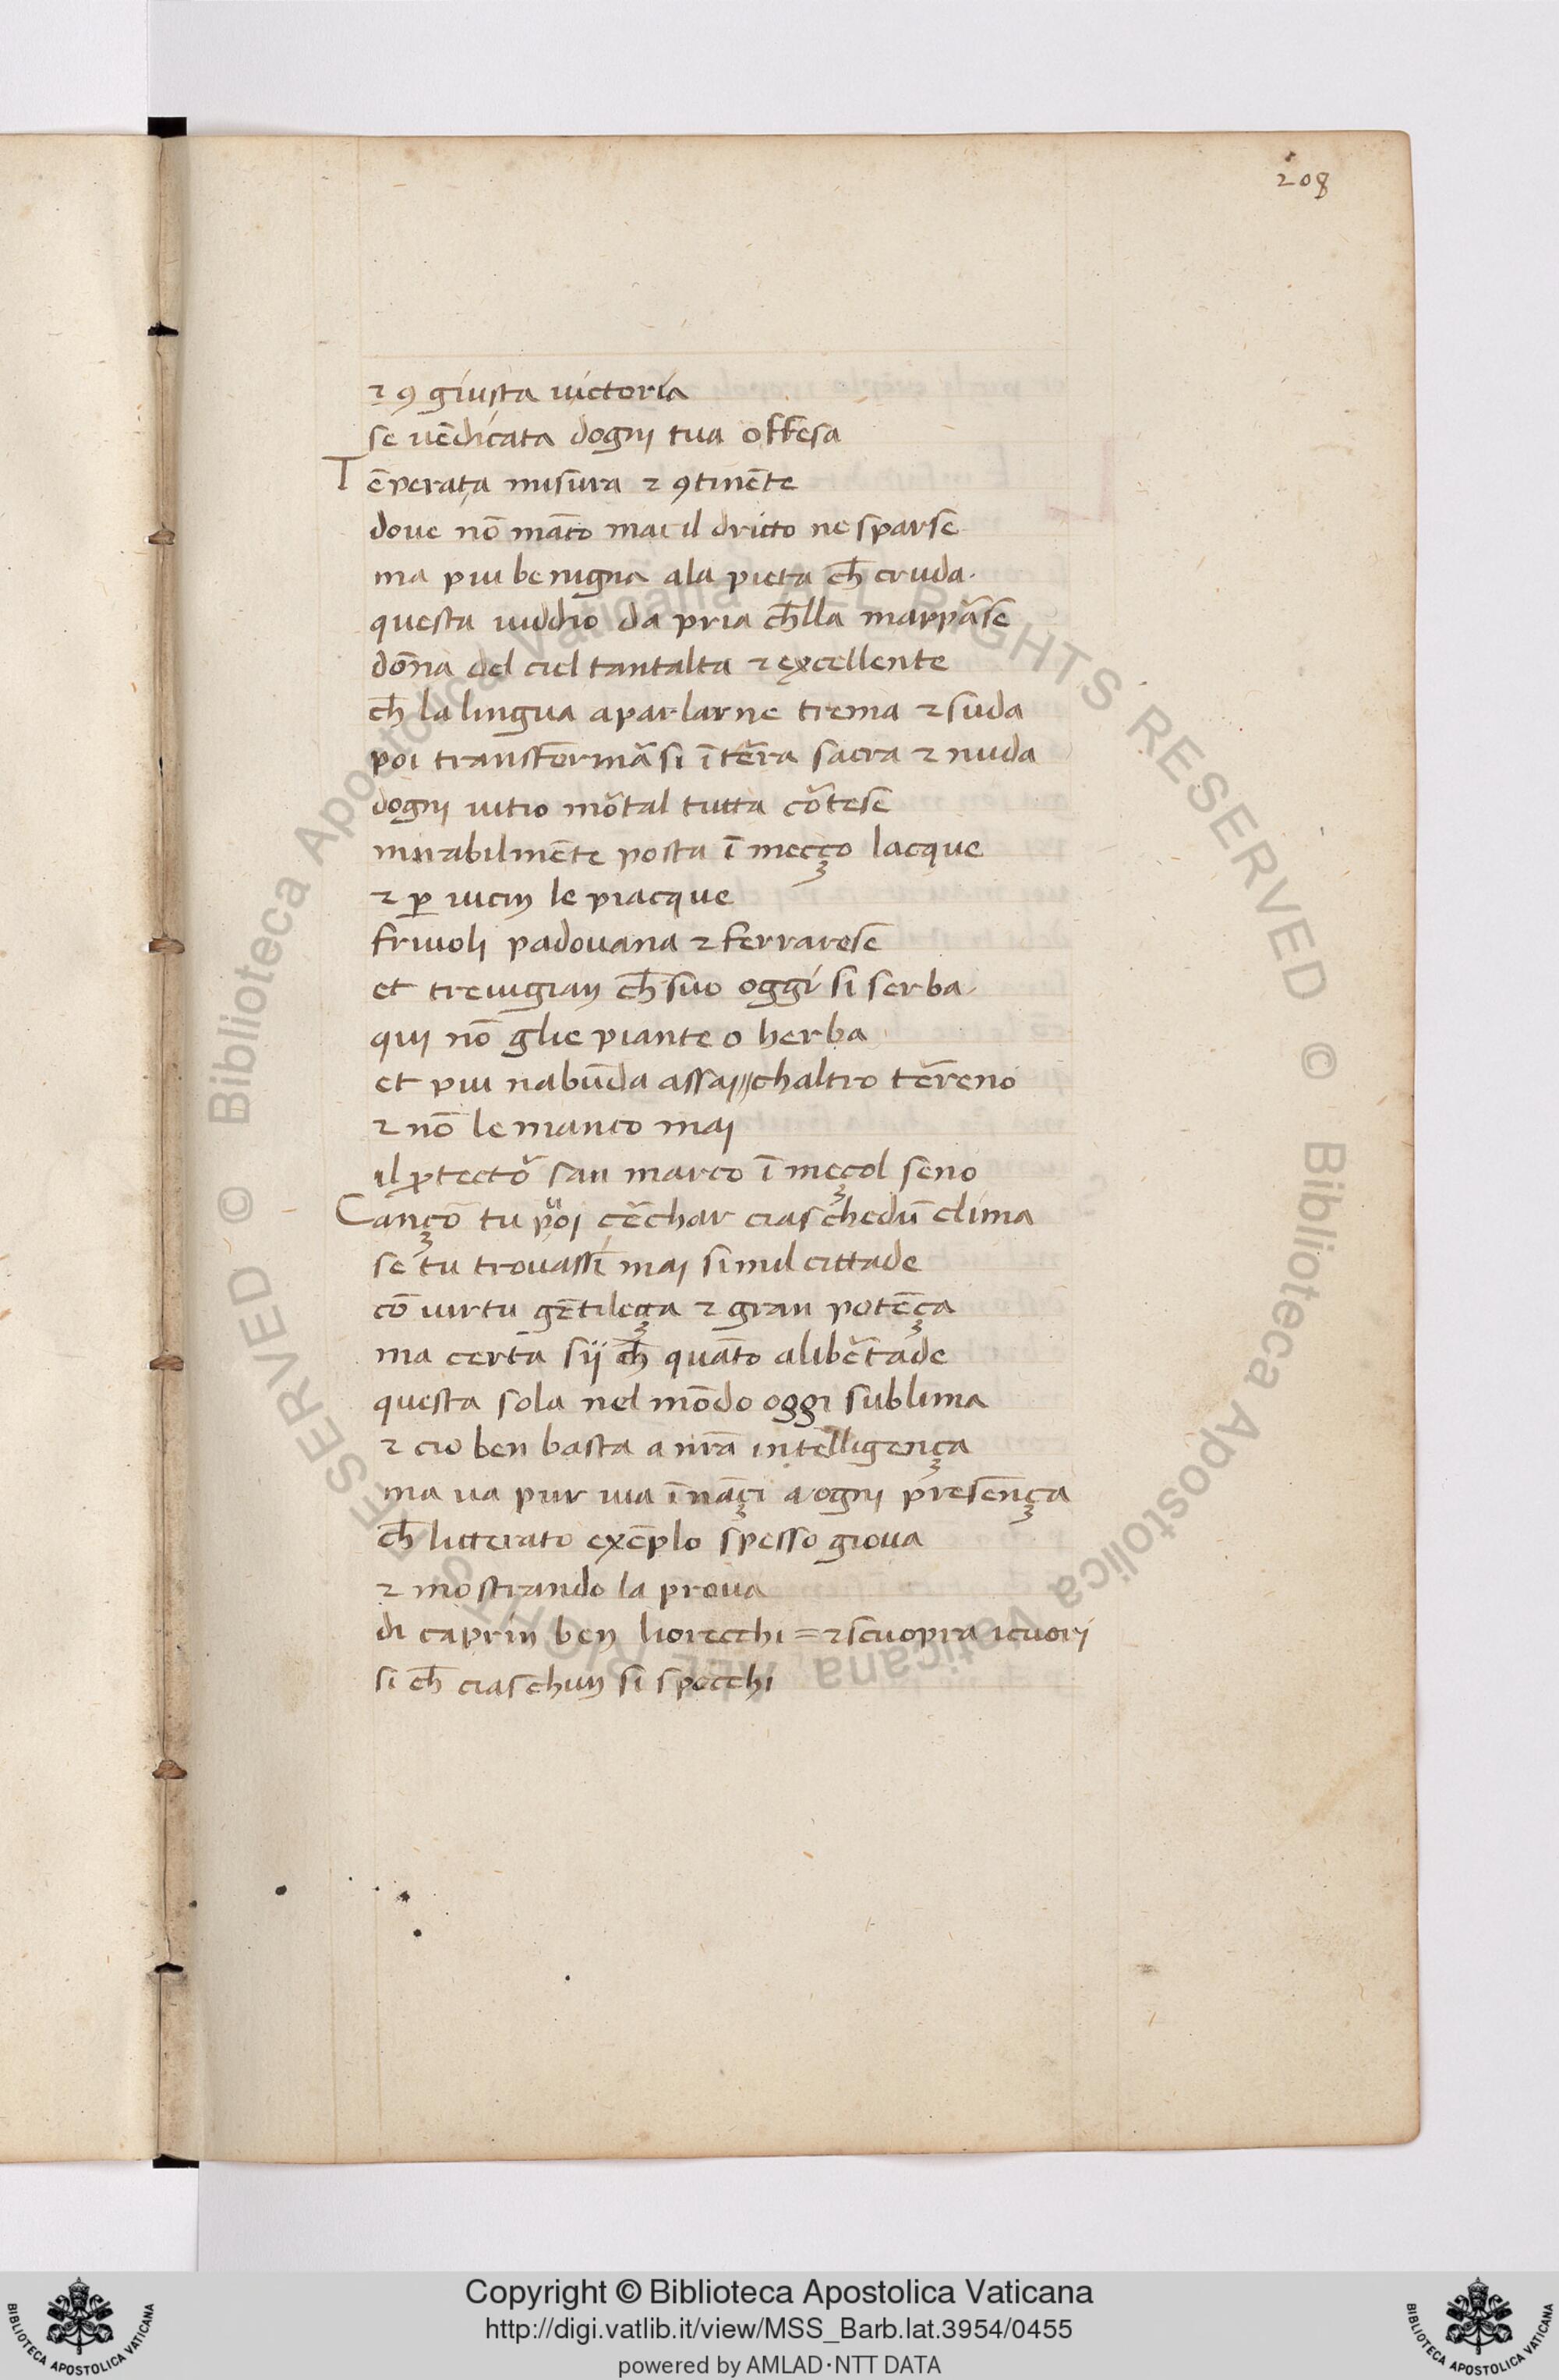 208
⁊ ꝯ giusta uictoria
se uēdicata dogni tua offesa
Tēperata misura ⁊ ꝯtinēte
doue nō māco mai il dricto ne sparse
ma piu benigna ala pieta ch̄ cruda.
questa uiddio da pria ch̄lla mappāse
dōna del ciel tantalta ⁊ excellente
ch̄ la lingua aparlarne trema ⁊ suda
poi transformāsi ī tēra sacra ⁊ nuda
dogni uitio mōtal tutta cōtese
mirabilmēte posta ī meçço lacque
⁊ ꝑ uicin le piacque
friuoli padouana ⁊ ferrarese
et treuigian ch̄ suo oggi si serba
qui nō glie piante o herba
et piu nabūda assai chaltro tēreno
⁊ nō le manco mai
il ꝓtectō san marco ī meçol seno
Cançō tu poi çēchar ciaschedū clima
se tu trouassi mai simil cittade
cō uirtu gētileça ⁊ gran potēça
ma certa sij ch̄ quāto alibētade
questa sola nel mōdo oggi sublima
⁊ cio ben basta a nr̄a intelligença
ma ua pur uia īnāçi a ogni presēnça
ch̄ litterato exēplo spesso gioua
⁊ mostrando la proua
di caprin ben liorecchi = ⁊ scuopra icuori
si ch̄ ciaschun si specchi
© Biblioteca Apostolica Vaticana ALL RIGHTS RESERVED
© Biblioteca Apostolica Vaticana ALL RIGHTS RESERVED
Copyright © Biblioteca Apostolica Vaticana
http://digi.vatlib.it/view/MSS_Barb.lat.3954/0455
powered by AMLAD·NTT DATA
BIBLIOTECA APOSTOLICA VATICANA
BIBLIOTECA APOSTOLICA VATICANA